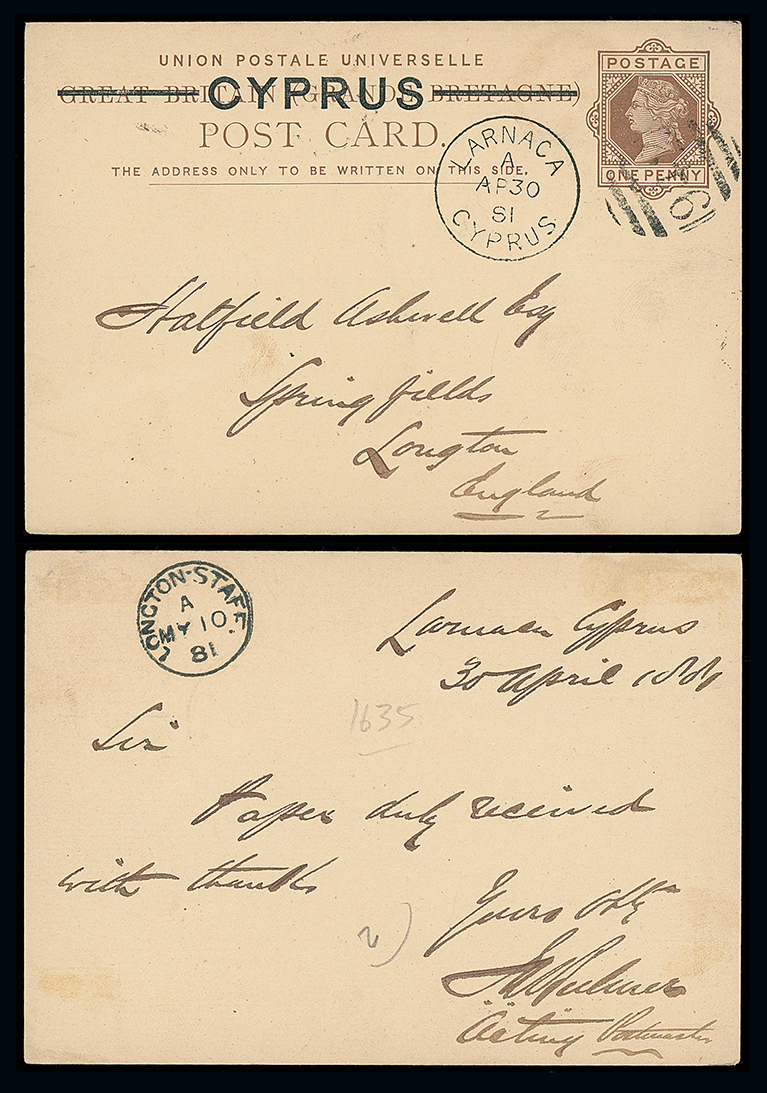 UNION POSTALE UNIVERSELLE
GREAT BRITAIN (GRANDE BRETAGNE)
CYPRUS
POST CARD.
THE ADDRESS ONLY TO BE WRITTEN ON THIS SIDE.
POSTAGE
ONE PENNY
LARNACA
A
AP30
81
CYPRUS
Hatfield Ashwell Esq
Springfields
Longton
England
LONGTON-STAFF.
A
MY 10
81
Larnaca Cyprus
30 April 1881
1635
Sir
Paper duly received
with thanks
Yours
Acting Postmaster